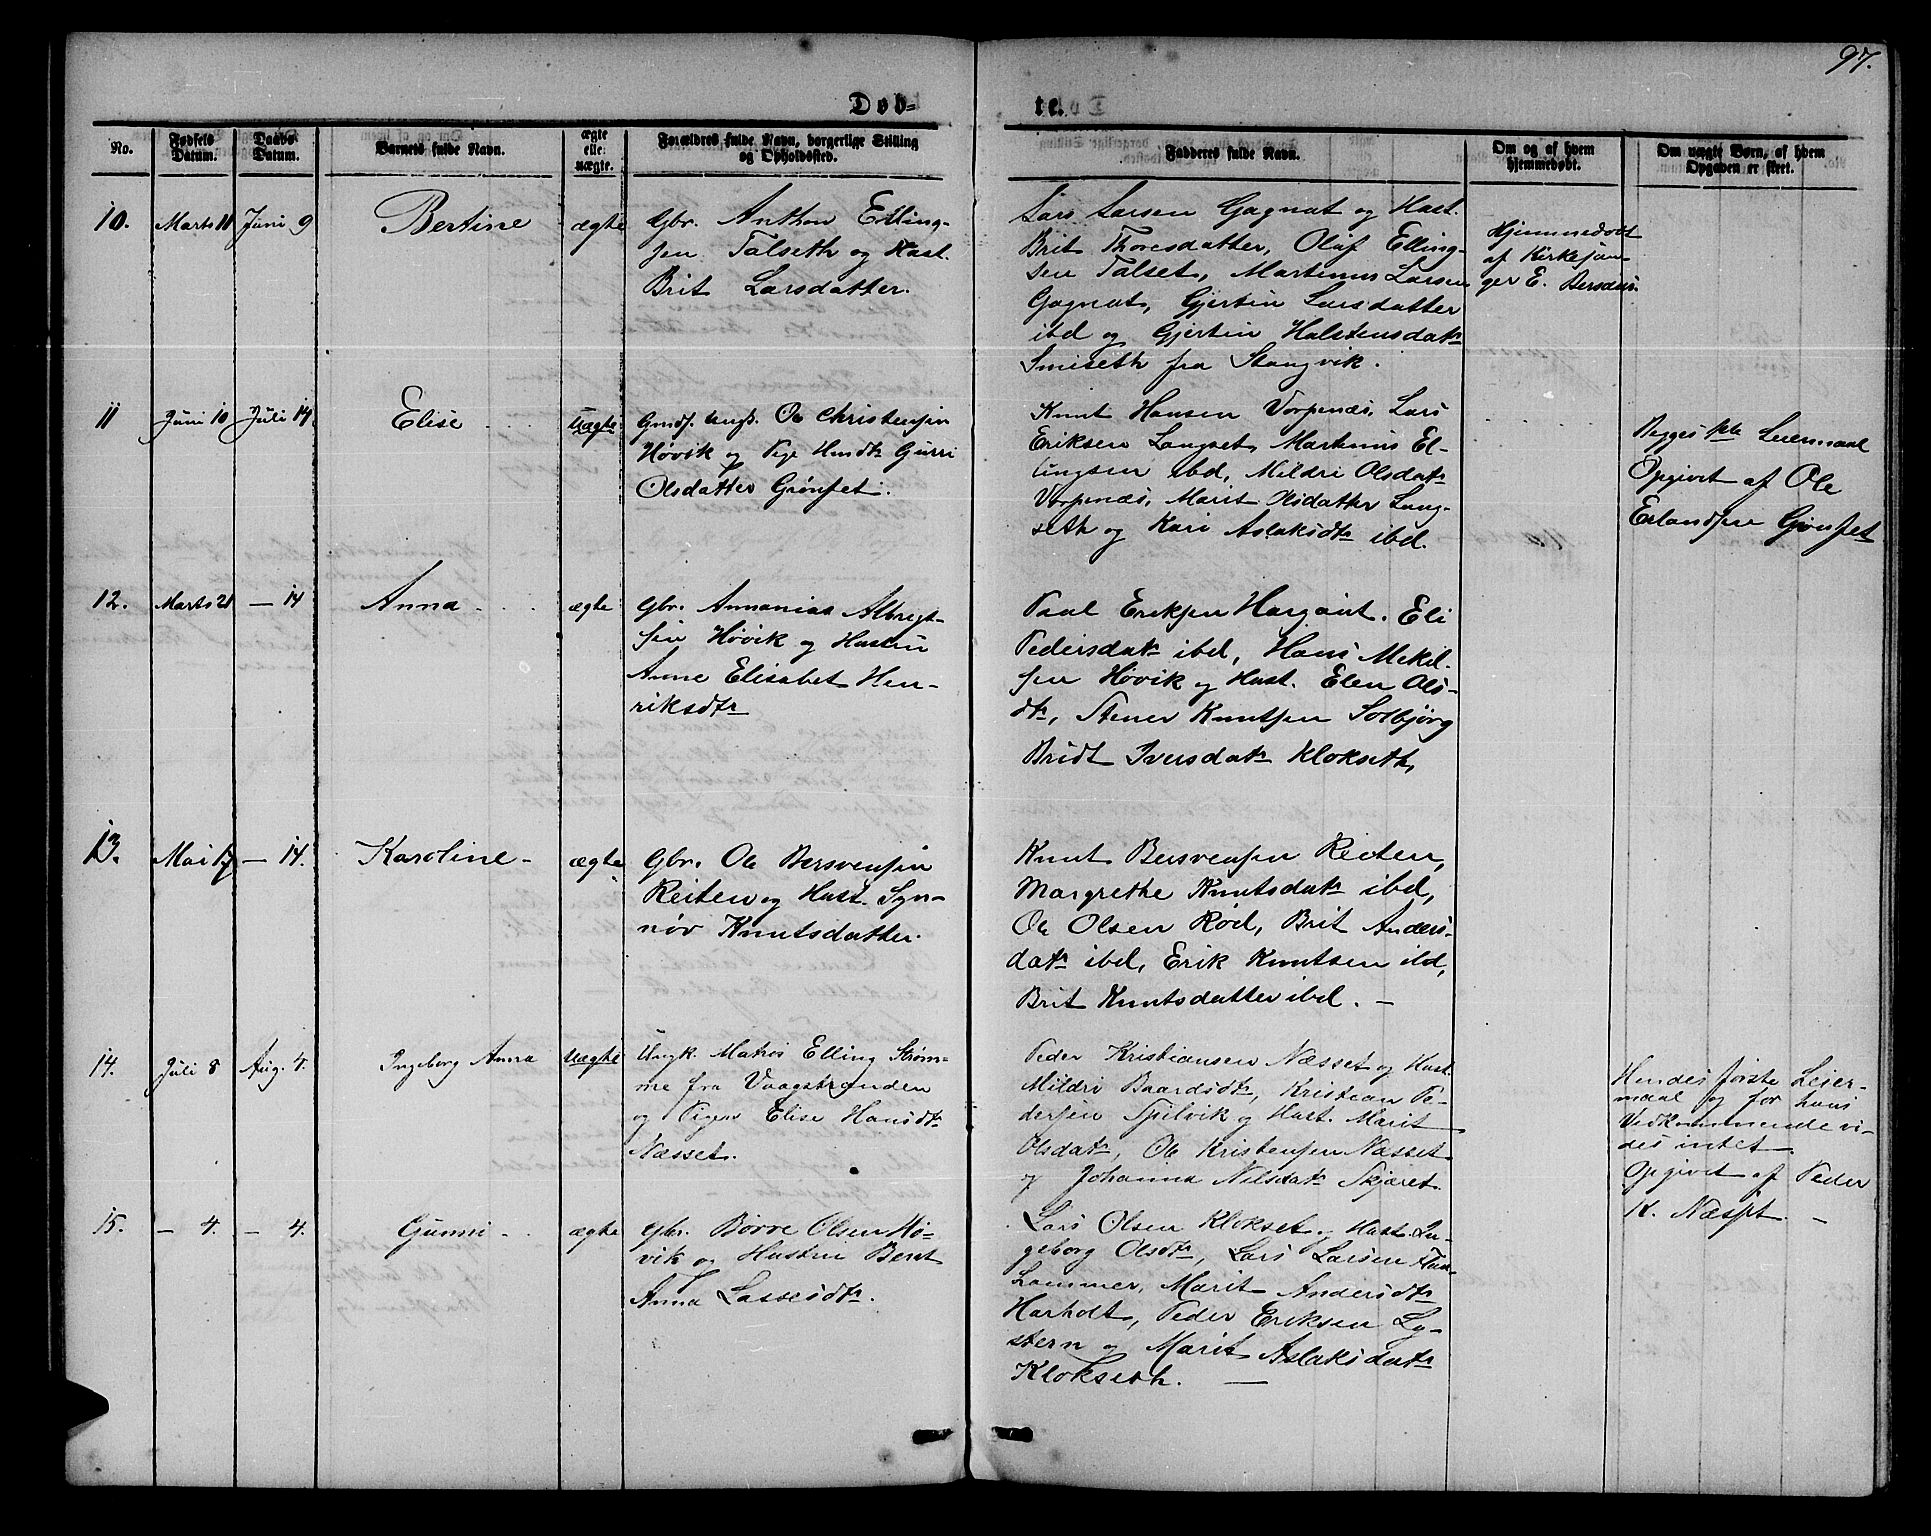 97.
Døb-
te.
No.
Fødsels Datum.
Daabs Datum.
Barnets fulde Navn.
ægte elle: uægte.
Forældres fulde Navn, borgerlige Stilling
og Opholdssted.
Fadderes fulde Navn.
Om og af hvem
hjemmedøbt.
Om uægte Børn, af hvem
Opgaven er skeet.
10. Marts 11 Juni 9 Bertine ægte
Gbr. Anthon Elling-
sen Talseth og Hust.
Brit Larsdatter.
Lars Larsen Gagnat og Hust.
Brit Thoresdatter, Olaf Elling-
sen Talset, Martinus Larsen
Gagnat, Gjertin Larsdatter
ibd og Gjertin Halstensdatr
Smiseth fra Stangvik.
Hjemmedøbt
af Kirkesan-
ger E. Bersaas.
11 Juni 10 Juli 14 Elise uægte
Gmds. Ungk. Ole Christensen
Høvik og Pige Hendt Gurri
Olsdatter Grønset.
Knut Hansen Vorpenæs, Lars
Eriksen Langset, Martinus El-
lingsen ibd, Mildri Olsdatr
Vorpenæs, Marit Olsdatter Lang-
seth og Kari Aslaksdtr ibd.
Begges 1ste Leiermaal
Opgivet af Ole
Erlandsen Grønset
12. Marts 21 — 14 Anna ægte
Gbr. Annanias Albregt-
sen Høvik og Hustru
Anne Elisabet Hen-
riksdtr
Paal Eriksen Hargaut. Eli
Pedersdatr ibd, Hans Mekel-
sen Høvik og Hust. Elen Ols-
dtr, Stener Knutsen Solbjørg
Bridt Iversdatr Klokseth,
13. Mai 17 — 14. Karoline - ægte
Gbr. Ole Bersvensen
Reiten og Hust. Syn-
nøv Knutsdatter.
Knut Bersvensen Reiten,
Margrethe Knutsdatr ibd,
Ole Olsen Rød, Brit Anders-
datr ibd, Erik Knutsen ibd,
Brit Knutsdatter ibd. —
14. Juli 8 Aug. 4. Ingeborg Anna uægte
Ungk. Matros Elling Strøm-
me fra Vaagstranden
og Pigen Elise Hansdtr
Næsset.
Peder Kristiansen Næsset og Hust.
Mildri Baardsdtr, Kristian Pe-
dersen Spilvik og Hust. Marit
Olsdatr, Ole Kristensen Næsset
og Johanna Nilsdatr Skjæret.
Hendes første Leier-
maal og for hans
Vedkommende vi-
des intet
Opgivet af Peder
K. Næsset. —
15. — 4. — 4. Gunni - ægte
Gbr. Børre Olsen Hø-
vik og Hustru Berit
Anna Lassesdtr.
Lars Olsen Klokset og Hust. In-
geborg Olsdtr, Lars Larsen Flaa-
hammer, Marit Andersdtr
Harholt, Peder Eriksen Ly-
stern og Marit Aslaksdatr
Klokseth. —